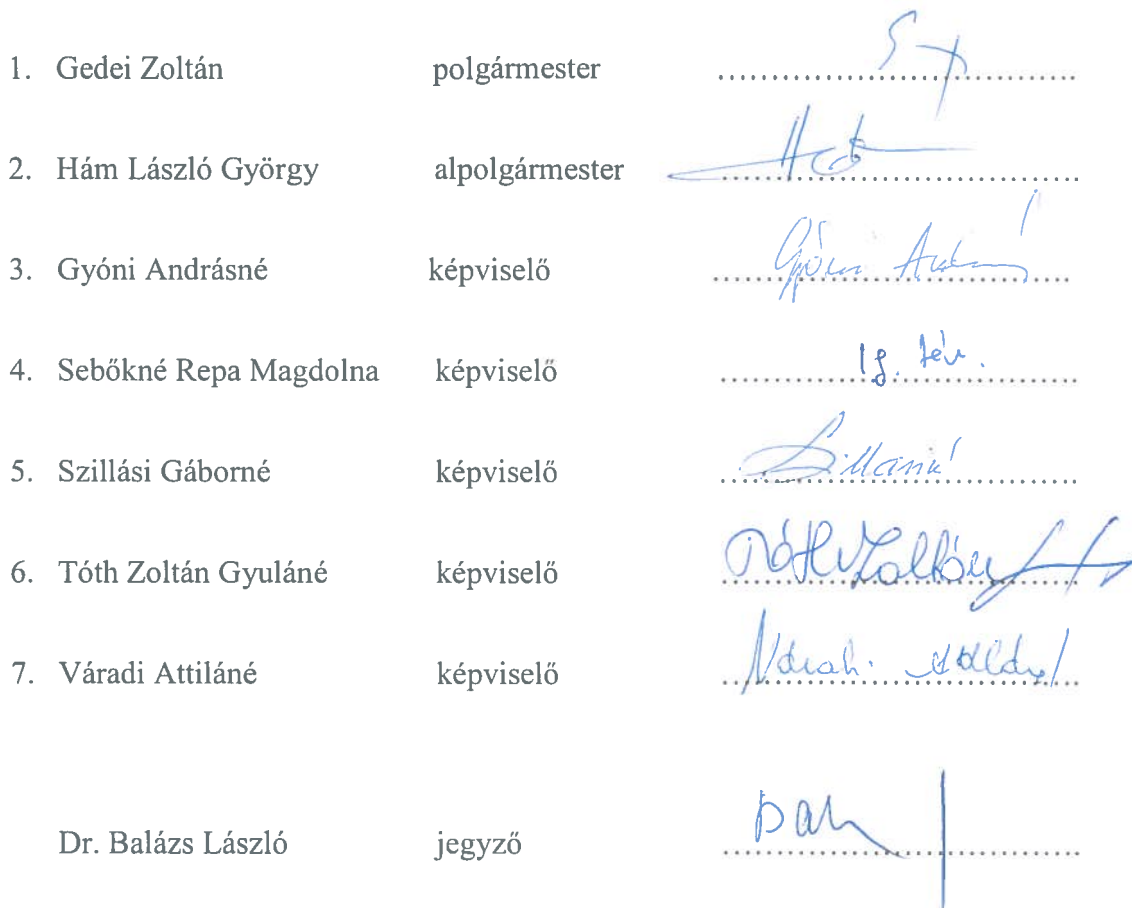 1. Gedei Zoltán polgármester
2. Hám László György alpolgármester
3. Gyóni Andrásné képviselő Gyóni
4. Sebőkné Repa Magdolna képviselő ig. táv.
5. Szillási Gáborné képviselő
6. Tóth Zoltán Gyuláné képviselő Tóth Zoltán
7. Váradi Attiláné képviselő Váradi
Dr. Balázs László jegyző